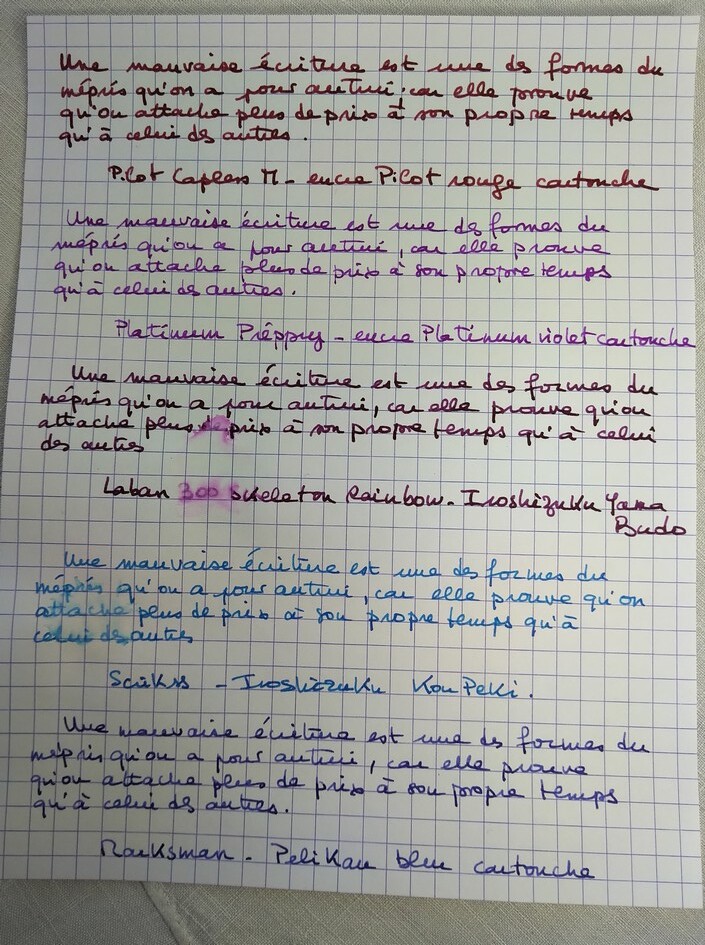 Une mauvaise écriture est une des formes du
mépris qu'on a pour autrui, car elle prouve
qu'on attache plus de prix à son propre temps
qu'à celui des autres.
Pilot Capless M - encre Pilot rouge cartouche
Une mauvaise écriture est une des formes du
mépris qu'on a pour autrui, car elle prouve
qu'on attache plus de prix à son propre temps
qu'à celui des autres.
Platinum Préppy - encre Platinum violet cartouche
Une mauvaise écriture est une des formes du
mépris qu'on a pour autrui, car elle prouve qu'on
attache plus de prix à son propre temps qu'à celui
des autres
Laban 300 Skeleton Rainbow - Iroshizuku Yama
Budo
Une mauvaise écriture est une des formes du
mépris qu'on a pour autrui, car elle prouve qu'on
attache plus de prix à son propre temps qu'à
celui des autres
Iroshizuku Kon Peki.
Une mauvaise écriture est une des formes du
mépris qu'on a pour autrui, car elle prouve
qu'on attache plus de prix à son propre temps
qu'à celui des autres.
Pelikan bleu cartouche